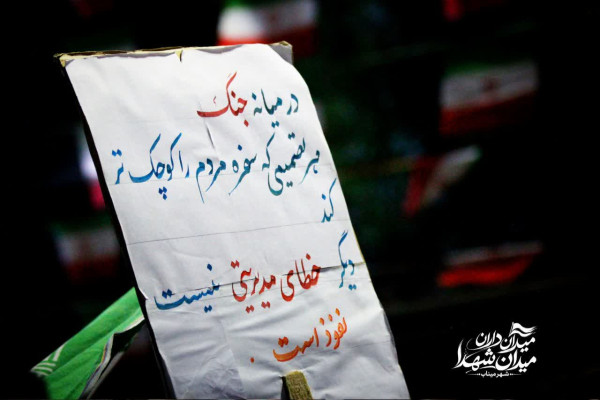 در میانه جنگ
هر تصمیمی که سفره مردم را کوچک تر
کند
دیگر خطای مدیریتی نیست
نفوذ است .
میدان داران
میدان شهدا
شهر میناب